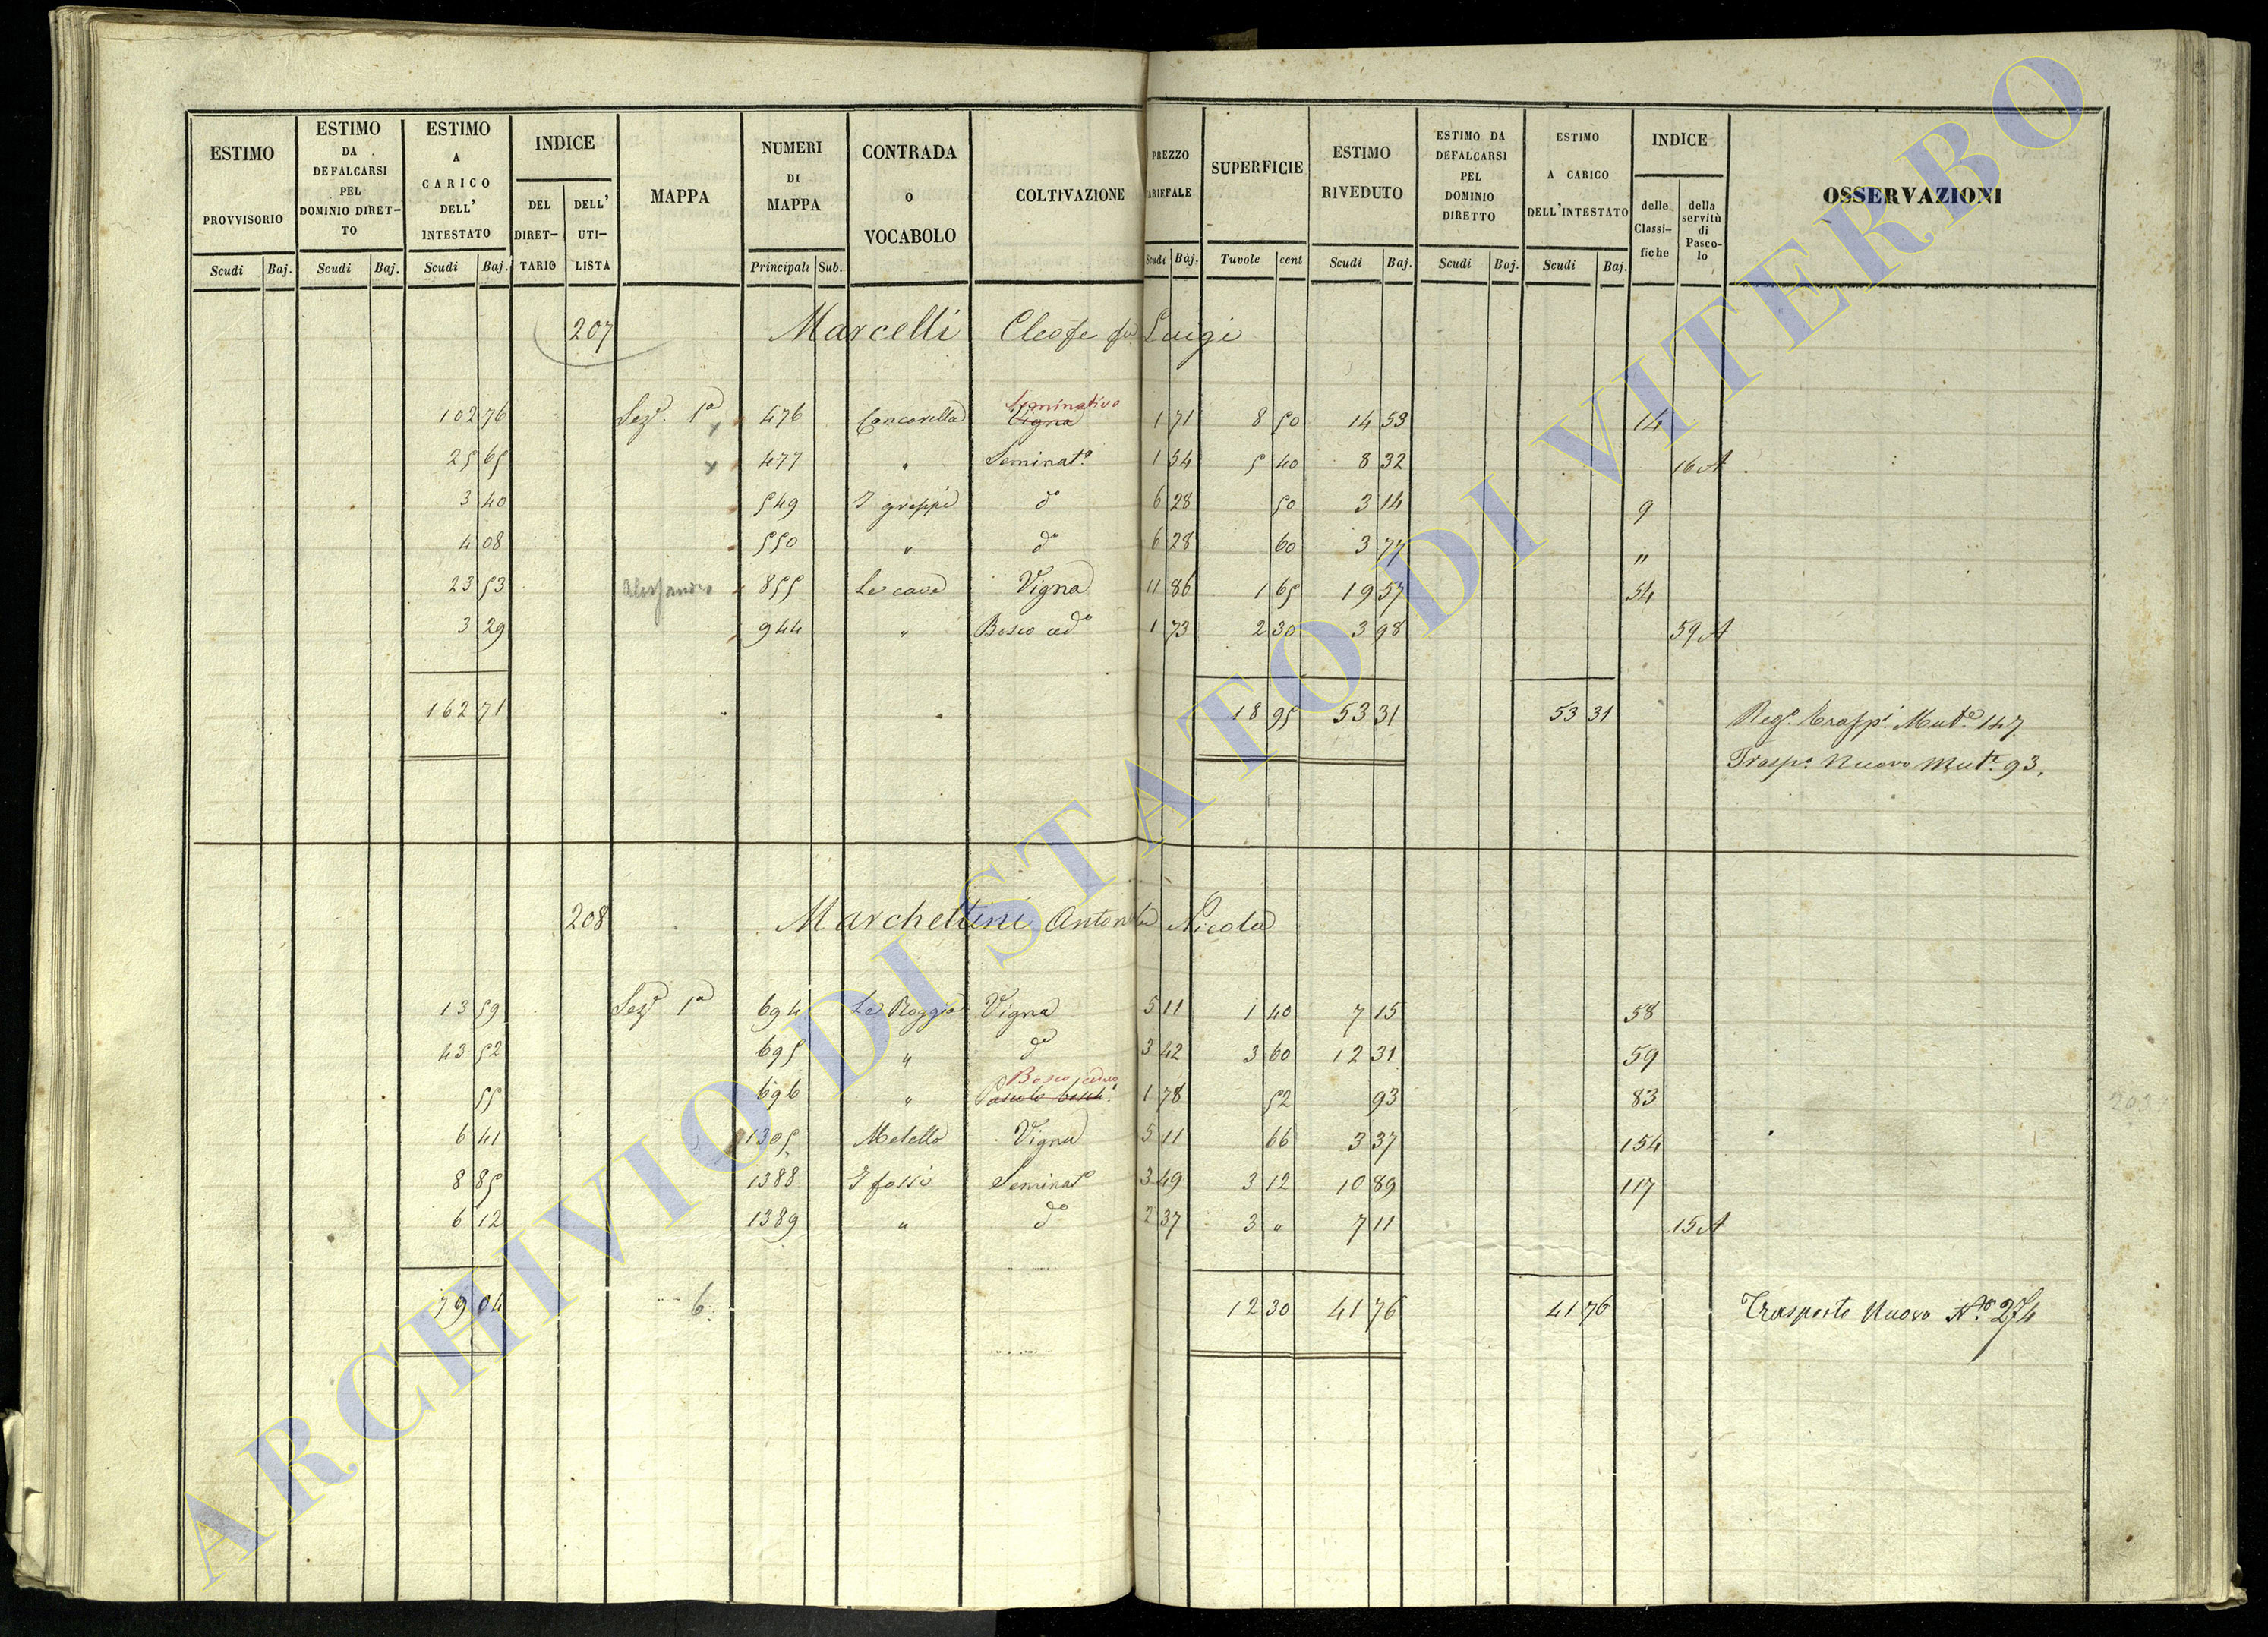 ESTIMO PROVVISORIO | ESTIMO DA DEFALCARSI PEL DOMINIO DIRET-TO | ESTIMO A CARICO DELL' INTESTATO | INDICE | MAPPA | NUMERI DI MAPPA | CONTRADA O VOCABOLO | COLTIVAZIONE | PREZZO TARIEFALE | SUPERFICIE | ESTIMO RIVEDUTO | ESTIMO DA DEFALCARSI PEL DOMINIO DIRETTO | ESTIMO A CARICO DELL'INTESTATO | INDICE | OSSERVAZIONI
DEL DIRET-TARIO | DELL' UTI-LISTA | delle Classi-fiche | della servitù di Pasco-lo
Scudi | Baj. | Scudi | Baj. | Scudi | Baj. | Principali | Sub. | Scudi | Baj. | Tavole | cent | Scudi | Baj. | Scudi | Baj. | Scudi | Baj.
207 Marcelli Cleofe fu Luigi
Seminativo
102 76 Sez.e 1a 476 Concarella Vigna 1 71 8 50 14 53 14
25 65 477 " Seminat.o 1 54 5 40 8 32 16 A
3 40 549 I greppi d.o 6 28 50 3 14 9
4 08 550 " d.o 6 28 60 3 77 "
23 53 Alessandro 855 Le cave Vigna 11 86 1 65 19 57 54
3 29 944 " Bosco ced.o 1 73 2 30 3 98 59 A
162 71 18 95 53 31 53 31 Reg.o Trasp.i Mut.e 147
Trasp.o Nuovo Mut.e 93.
208 Marchettini Anton fu Nicola
13 59 Sez.e 1a 694 Le Roggie Vigna 5 11 1 40 7 15 58
43 52 695 " d.o 3 42 3 60 12 31 59
Bosco ceduo
55 696 " Pascolo bosch.o 1 78 52 93 83
6 41 1305 Metello Vigna 5 11 66 3 37 154
8 85 1388 I fossi Seminat.o 3 49 3 12 10 89 117
6 12 1389 " d.o 2 37 3 " 7 11 15 A
79 04 6. 12 30 41 76 41 76 Trasporto Nuovo N.o 274
ARCHIVIO DI STATO DI VITERBO